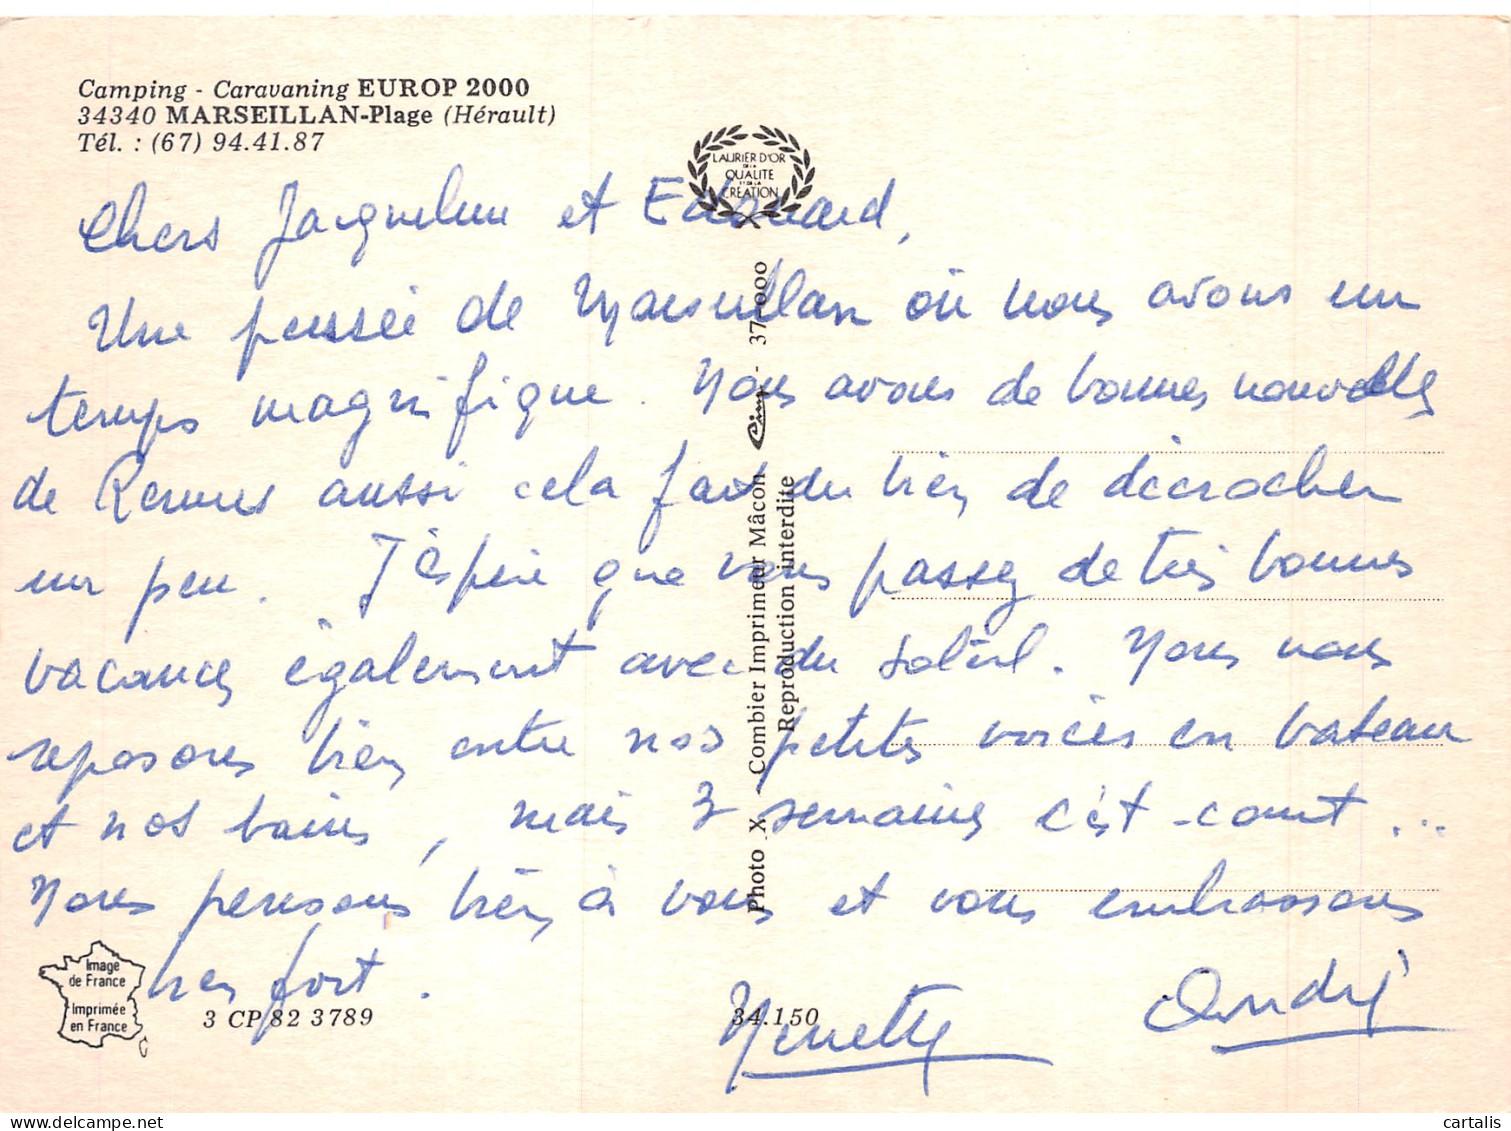 Camping - Caravaning EUROP 2000
34340 MARSEILLAN-Plage (Hérault)
Tél. : (67) 94.41.87
LAURIER D'OR
DE LA
QUALITE
ET DE LA
CREATION
Chers Jacqueline et Edouard,
Une pensée de Marseillan où nous avons un
temps magnifique. Nous avons de bonnes nouvelles
de Rennes aussi cela fait du bien de décrocher
un peu. J'espère que vous passez de très bonnes
vacances également avec du soleil. Nous nous
reposons bien entre nos petites virées en bateau
et nos bains, mais 3 semaines c'est court...
Nous pensons bien à vous et vous embrassons
bien fort.
Nenette André
Photo X - Combier Imprimeur Mâcon Cim - 37-000
Reproduction interdite
Image
de France
Imprimée
en France
3 CP 82 3789
34.150
cartalis
delcampe.net